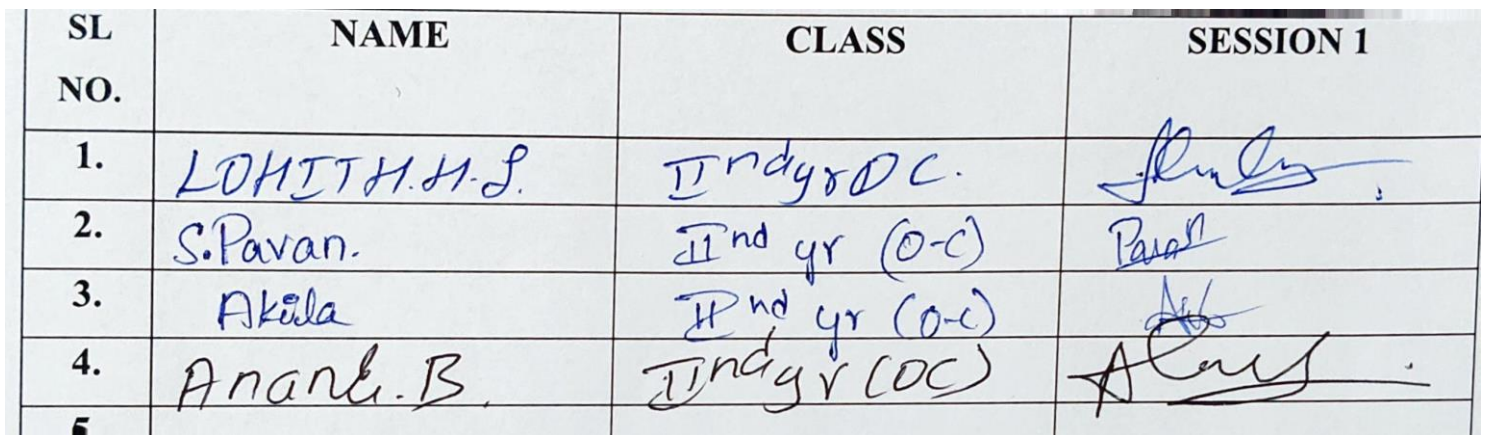 SL NO. NAME CLASS SESSION 1
1. LOHITH.H.S. IInd yr OC.
2. S.Pavan. IInd yr (O-C) Pavan
3. Akila IInd yr (O-C)
4. Anand.B. IInd yr (OC)
5